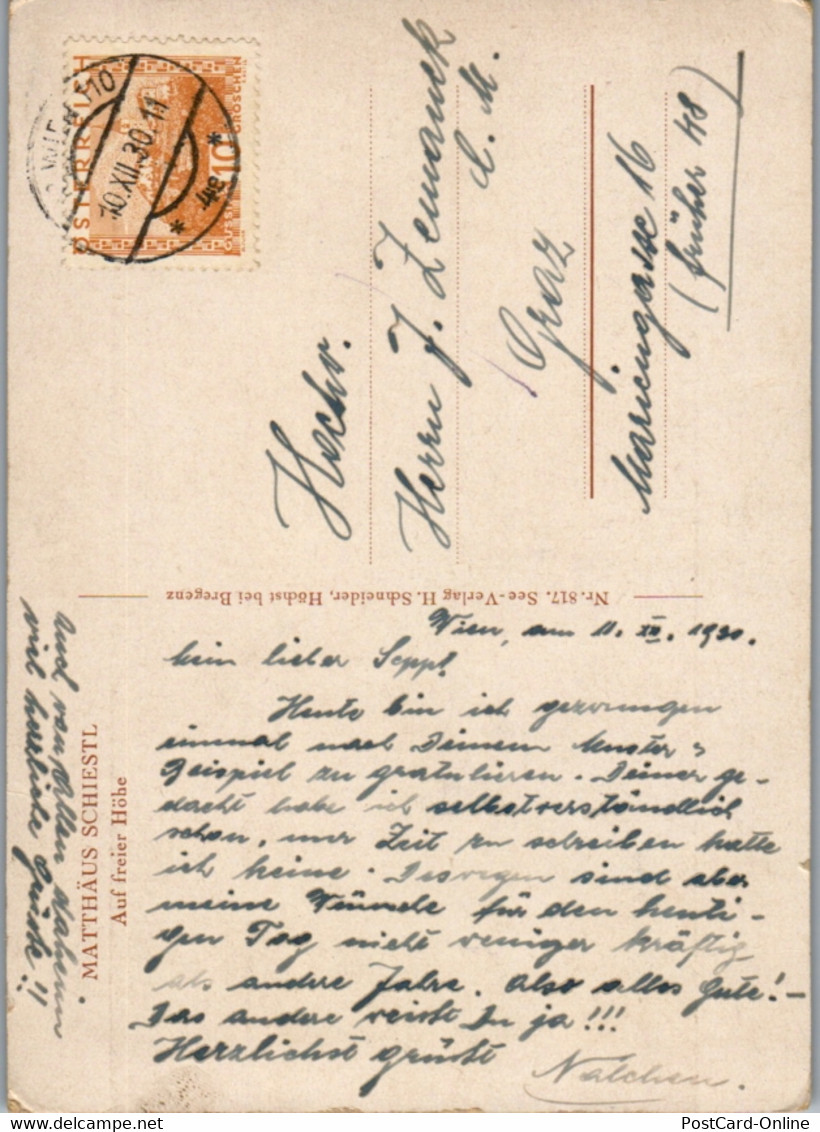 ÖSTERREICH
10 GROSCHEN
WIEN 110
10.XII.30.11
* 4e *
Hochw.
Herrn J. Zemanek
Graz
Mariengasse 16
(früher 48)
Nr. 817. See-Verlag H. Schneider, Höchst bei Bregenz
MATTHÄUS SCHIESTL
Auf freier Höhe
Wien, am 11. XII. 1930.
Mein lieber Sepp!
Heute bin ich gezwungen
einmal nach Deinem Muster =
Beispiel zu gratulieren. Deiner ge-
dacht habe ich selbstverständlich
schon, nur Zeit zu schreiben hatte
ich keine. Deswegen sind aber
meine Wünsche für den heuti-
gen Tag nicht weniger kräftig
als andere Jahre. Also alles Gute! -
Das andere weißt Du ja!!!
Herzlichst grüßt
Nalchen.
Auch von Allen daheim
viel herzliche Grüße!!
PostCard-Online